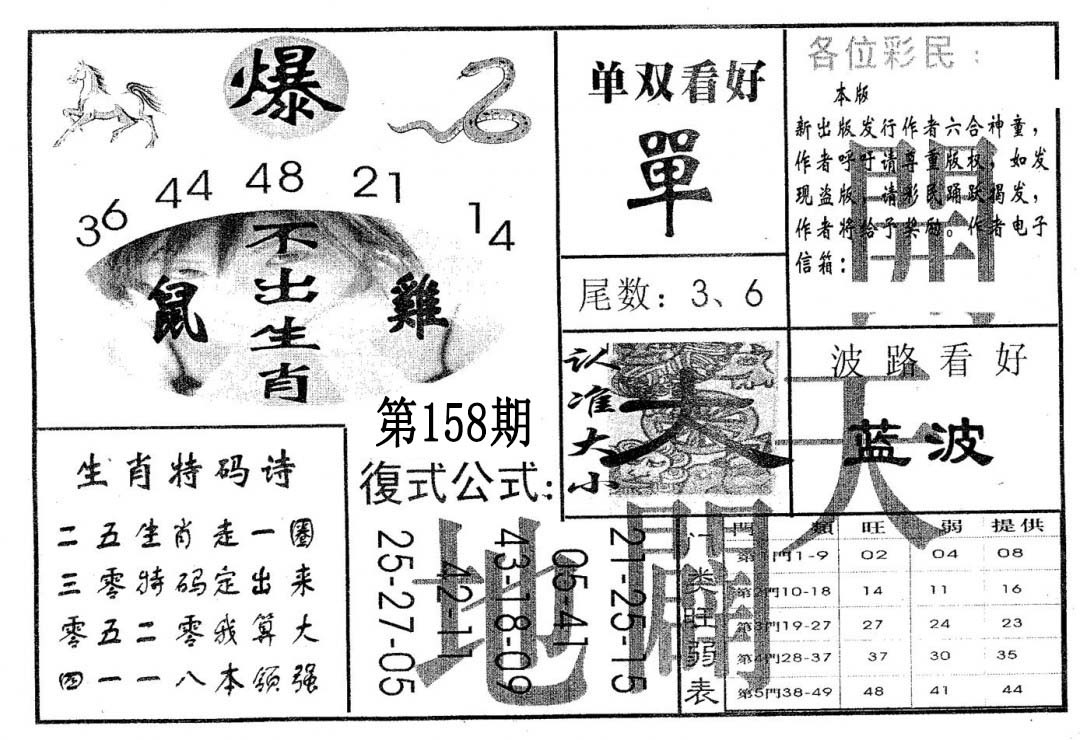 爆
36
44
48
21
14
不出生肖
鼠
雞
单双看好
單
尾数：3、6
各位彩民：
本版
新出版发行作者六合神童，
作者呼吁请尊重版权，如发
现盗版，请彩民踊跃揭发，
作者将给予奖励。作者电子
信箱：
開天
闢地
认准大小
大
波路看好
蓝波
第158期
復式公式：
21-25-15
05-41
43-18-09
42-11
25-27-05
生肖特码诗
二五生肖走一圈
三零特码定出来
零五二零我算大
四一一八本领强
门类旺弱表
門類 旺 弱 提供
第1門1-9 02 04 08
第2門10-18 14 11 16
第3門19-27 27 24 23
第4門28-37 37 30 35
第5門38-49 48 41 44